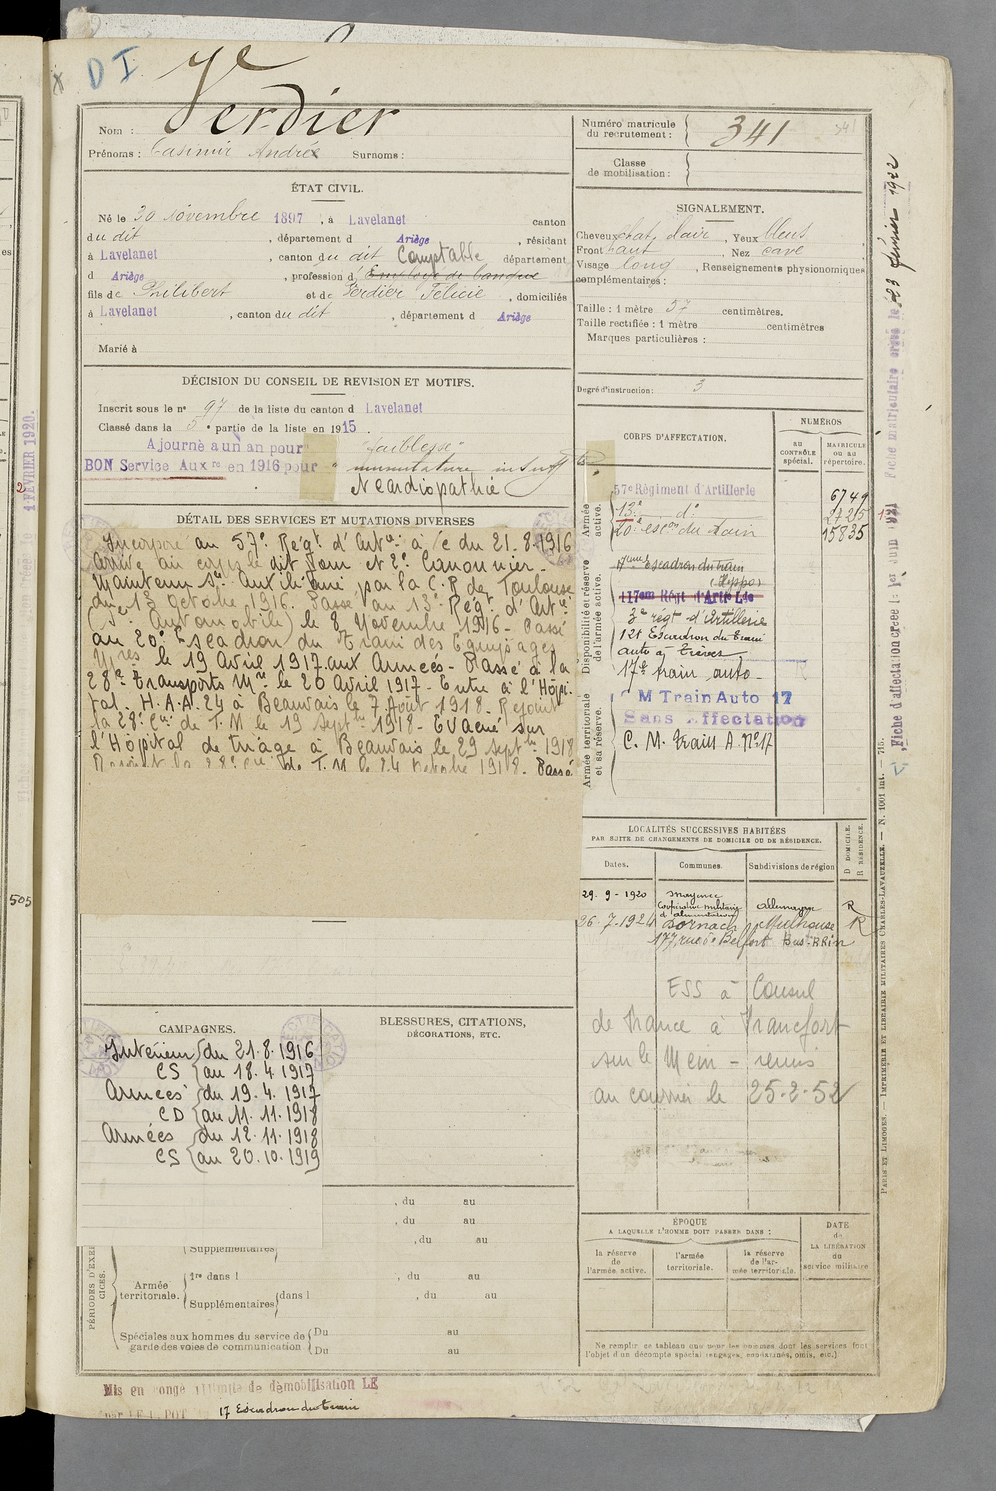 D I
Verdier
Nom :
Prénoms : Casimir André Surnoms :
Numéro matricule
du recrutement : 341
Classe
de mobilisation :
ÉTAT CIVIL.
Né le 30 Novembre 1897, à Lavelanet canton
du dit, département d Ariège, résidant
à Lavelanet, canton du dit Comptable département
d Ariège, profession d'Employé de banque
fils de Philibert et de Verdier Félicie, domiciliés
à Lavelanet, canton du dit, département d Ariège
Marié à
SIGNALEMENT.
Cheveux chat. clair, Yeux bleus
Front haut, Nez cave
Visage long, Renseignements physionomiques
complémentaires :
Taille : 1 mètre 57 centimètres.
Taille rectifiée : 1 mètre centimètres
Marques particulières :
Degré d'instruction : 3
DÉCISION DU CONSEIL DE REVISION ET MOTIFS.
Inscrit sous le n° 97 de la liste du canton d Lavelanet
Classé dans la 5e partie de la liste en 1915.
Ajourné à un an pour "faiblesse"
BON Service Auxre en 1916 pour "musculature insuffte
Néardiopathie
DÉTAIL DES SERVICES ET MUTATIONS DIVERSES
Incorporé au 57e Régt d'Artie à/c du 21-8-1916
Arrivé au corps le dit jour et 2e Canonnier.
Maintenu Sce Auxiliaire par la C.R. de Toulouse
du 13 octobre 1916. Passé au 13e Régt d'Artie
(Sce Automobile) le 8 Novembre 1916 - Passé
au 20e Escadron du Train des Equipages
Mres le 19 Avril 1917 aux Armées - Passé à la
28e Transports Mre le 20 Avril 1917 - Entré à l'Hôpi-
tal H.A.A. 24 à Beauvais le 7 Août 1918. Rejoint
la 28e Cie de T.M le 19 Septbre 1918 - Evacué sur
l'Hôpital de triage à Beauvais le 29 Septbre 1918
Rejoint la 28e Cie de T.M le 24 octobre 1918. Passé
CORPS D'AFFECTATION.
NUMÉROS
au
CONTRÔLE
spécial.
MATRICULE
ou au
répertoire.
Armée
active.
57e Régiment d'Artillerie 6749
13e do 2725
20e escon du Train 15835
Disponibilité et réserve
de l'armée active.
17eme Escadron du train
(Hippo)
117em Régt d'Artie Lde
3e régt d'Artillerie
121 Escadron du train
auto à Trèves
17e train auto
Armée territoriale
et sa réserve.
C M Train Auto 17
Sans affectation
C. M. Train A. N° 17
LOCALITÉS SUCCESSIVES HABITÉES
PAR SUITE DE CHANGEMENTS DE DOMICILE OU DE RÉSIDENCE.
D DOMICILE.
R RÉSIDENCE.
Dates. Communes. Subdivisions de région
29-9-1920 Mayence Allemagne R
Coopérative militaire
d'alimentation
26-7-1924 Dornach Mulhouse R
177, rue de Belfort Bas-RHin
ESS à Consul
de France à Francfort
sur le Mein - remis
au courrier le 25-2-52
CAMPAGNES.
Intérieur du 21-8-1916
CS au 18.4.1917
Armées du 19.4.1917
CD au 11.11.1918
Armées du 12.11.1918
CS au 20.10.1919
BLESSURES, CITATIONS,
DÉCORATIONS, ETC.
, du au
, du au
, du au
PÉRIODES D'EXER
CICES.
Supplémentaires
Armée
territoriale.
1re dans l , du au
Supplémentaires dans l , du au
Spéciales aux hommes du service de
garde des voies de communication
Du au
Du au
ÉPOQUE
A LAQUELLE L'HOMME DOIT PASSER DANS :
la réserve
de
l'armée active.
l'armée
territoriale.
la réserve
de l'ar-
mée territoriale.
DATE
de
LA LIBÉRATION
du
service militaire
Ne remplir ce tableau que pour les hommes dont les services font
l'objet d'un décompte spécial (engagés, condamnés, omis, etc.)
Mis en congé illimité de démobilisation LE
17 Escadron du train
PARIS ET LIMOGES. — IMPRIMERIE ET LIBRAIRIE MILITAIRES CHARLES-LAVAUZELLE. — N. 1001 int. — 715.
Fiche d'affectation créée le 1er juin 1921
Fiche matriculaire créée le 23 février 1922
4 FÉVRIER 1920.
505